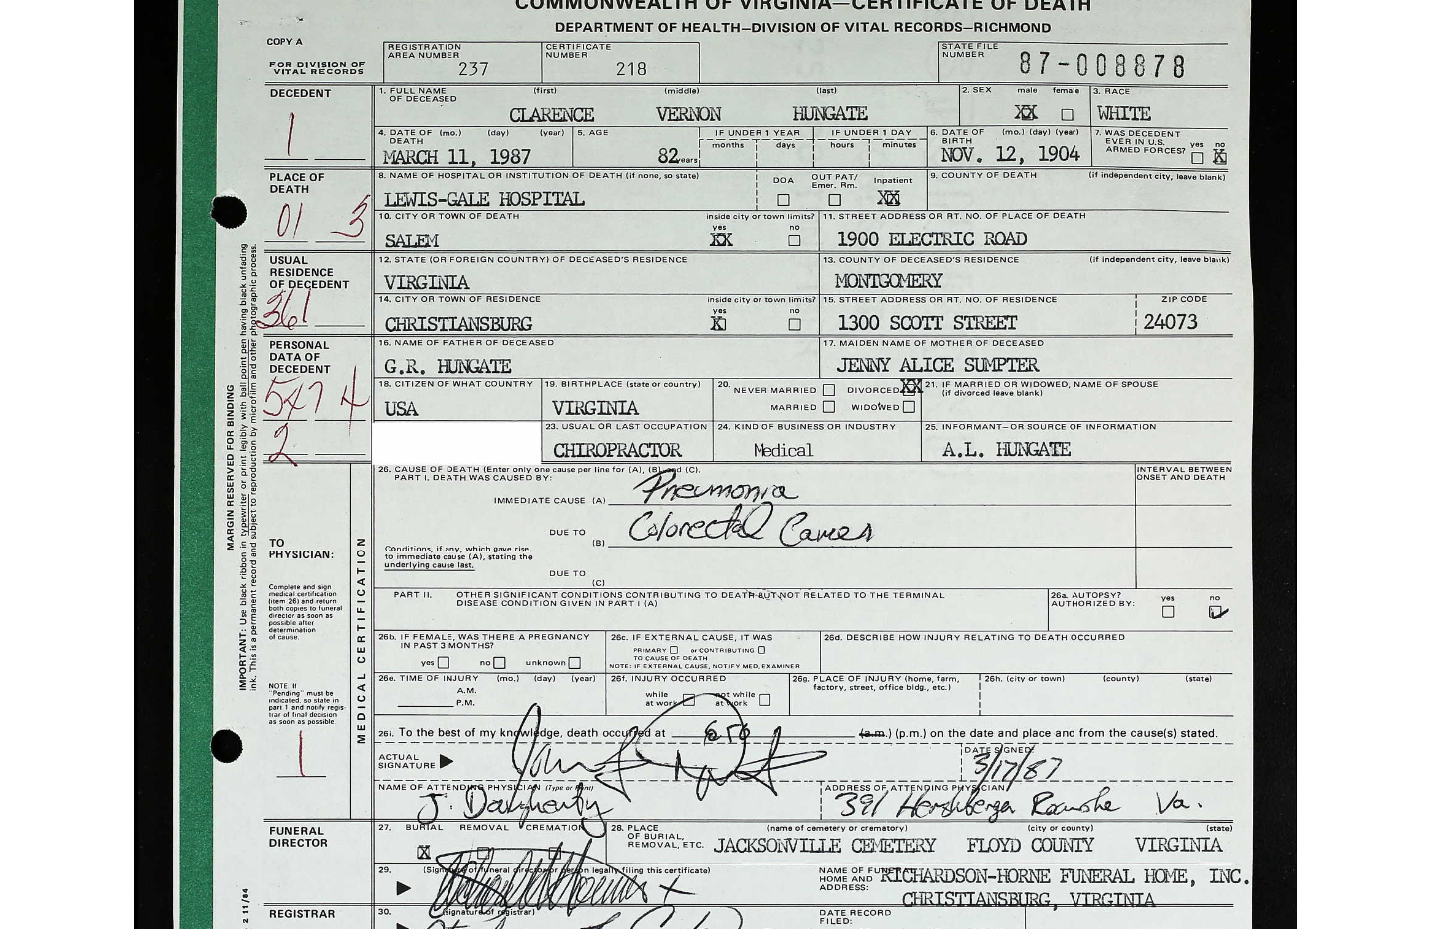 COMMONWEALTH OF VIRGINIA—CERTIFICATE OF DEATH
DEPARTMENT OF HEALTH—DIVISION OF VITAL RECORDS—RICHMOND
COPY A
FOR DIVISION OF VITAL RECORDS
REGISTRATION AREA NUMBER 237
CERTIFICATE NUMBER 218
STATE FILE NUMBER 87-008878
DECEDENT
1
1. FULL NAME OF DECEASED (first) (middle) (last)
CLARENCE VERNON HUNGATE
2. SEX male female
XX
3. RACE
WHITE
4. DATE OF DEATH (mo.) (day) (year)
MARCH 11, 1987
5. AGE
82 years
IF UNDER 1 YEAR months days
IF UNDER 1 DAY hours minutes
6. DATE OF BIRTH (mo.) (day) (year)
NOV. 12, 1904
7. WAS DECEDENT EVER IN U.S. ARMED FORCES? yes no
X
PLACE OF DEATH
01 3
8. NAME OF HOSPITAL OR INSTITUTION OF DEATH (if none, so state)
LEWIS-GALE HOSPITAL
DOA OUT PAT/ Emer. Rm. Inpatient
XX
9. COUNTY OF DEATH (if independent city, leave blank)
10. CITY OR TOWN OF DEATH
SALEM
inside city or town limits? yes no
XX
11. STREET ADDRESS OR RT. NO. OF PLACE OF DEATH
1900 ELECTRIC ROAD
USUAL RESIDENCE OF DECEDENT
361
12. STATE (OR FOREIGN COUNTRY) OF DECEASED'S RESIDENCE
VIRGINIA
13. COUNTY OF DECEASED'S RESIDENCE (if independent city, leave blank)
MONTGOMERY
14. CITY OR TOWN OF RESIDENCE
CHRISTIANSBURG
inside city or town limits? yes no
X
15. STREET ADDRESS OR RT. NO. OF RESIDENCE
1300 SCOTT STREET
ZIP CODE
24073
PERSONAL DATA OF DECEDENT
547 4
2
16. NAME OF FATHER OF DECEASED
G.R. HUNGATE
17. MAIDEN NAME OF MOTHER OF DECEASED
JENNY ALICE SUMPTER
18. CITIZEN OF WHAT COUNTRY
USA
19. BIRTHPLACE (state or country)
VIRGINIA
20. NEVER MARRIED DIVORCED XX
MARRIED WIDOWED
21. IF MARRIED OR WIDOWED, NAME OF SPOUSE (if divorced leave blank)
23. USUAL OR LAST OCCUPATION
CHIROPRACTOR
24. KIND OF BUSINESS OR INDUSTRY
Medical
25. INFORMANT—OR SOURCE OF INFORMATION
A.L. HUNGATE
MARGIN RESERVED FOR BINDING
IMPORTANT: Use black ribbon in typewriter or print legibly with ball point pen having black unfading
ink. This is a permanent record and subject to reproduction by microfilm and other photographic process.
MEDICAL CERTIFICATION
26. CAUSE OF DEATH (Enter only one cause per line for (A), (B) and (C).
PART I. DEATH WAS CAUSED BY:
INTERVAL BETWEEN ONSET AND DEATH
IMMEDIATE CAUSE (A) Pneumonia
DUE TO (B) Colorectal
Conditions, if any, which gave rise to immediate cause (A), stating the underlying cause last.
DUE TO (C)
TO PHYSICIAN:
Complete and sign medical certification (item 26) and return both copies to funeral director as soon as possible after determination of cause.
PART II. OTHER SIGNIFICANT CONDITIONS CONTRIBUTING TO DEATH BUT NOT RELATED TO THE TERMINAL DISEASE CONDITION GIVEN IN PART I (A)
26a. AUTOPSY? AUTHORIZED BY: yes no
26b. IF FEMALE, WAS THERE A PREGNANCY IN PAST 3 MONTHS?
yes no unknown
26c. IF EXTERNAL CAUSE, IT WAS
PRIMARY or CONTRIBUTING
TO CAUSE OF DEATH
NOTE: IF EXTERNAL CAUSE, NOTIFY MED, EXAMINER
26d. DESCRIBE HOW INJURY RELATING TO DEATH OCCURRED
26e. TIME OF INJURY (mo.) (day) (year)
A.M.
P.M.
26f. INJURY OCCURRED
while at work not while at work
26g. PLACE OF INJURY (home, farm, factory, street, office bldg., etc.)
26h. (city or town) (county) (state)
NOTE: If "Pending" must be indicated, so state in part 1 and notify registrar of final decision as soon as possible.
1
26i. To the best of my knowledge, death occurred at (a.m.) (p.m.) on the date and place and from the cause(s) stated.
ACTUAL SIGNATURE
DATE SIGNED:
3/17/87
NAME OF ATTENDING PHYSICIAN (Type or Print)
J. Daugherty
ADDRESS OF ATTENDING PHYSICIAN
391 Hershberger Roanoke Va.
FUNERAL DIRECTOR
27. BURIAL REMOVAL CREMATION
X
28. PLACE OF BURIAL, REMOVAL, ETC. (name of cemetery or crematory) (city or county) (state)
JACKSONVILLE CEMETERY FLOYD COUNTY VIRGINIA
29. (Signature of funeral director or person legally filing this certificate)
NAME OF FUNERAL HOME AND ADDRESS:
RICHARDSON-HORNE FUNERAL HOME, INC.
CHRISTIANSBURG, VIRGINIA
2 11/84
REGISTRAR
30. (signature of registrar)
DATE RECORD FILED: